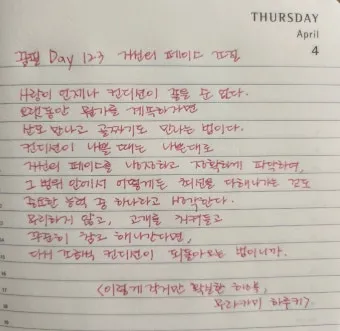 THURSDAY
April
4
꿈필 Day 123 자신의 페이스 조절
사람이 언제나 컨디션이 좋을 순 없다.
오랫동안 뭔가를 계속하려면
산도 만나고 골짜기도 만나는 법이다.
컨디션이 나쁠 때는 나쁜대로
자신의 페이스를 냉정하고 정확하게 파악하여,
그 범위 안에서 어떻게든 최선을 다해나가는 것도
중요한 능력 중 하나라고 생각한다.
무리하지 않고, 고개를 치켜들고
꾸준히 참고 해나간다면,
다시 조금씩 컨디션이 되돌아오는 법이니까.
<이렇게 작지만 확실한 행복,
무라카미 하루키>